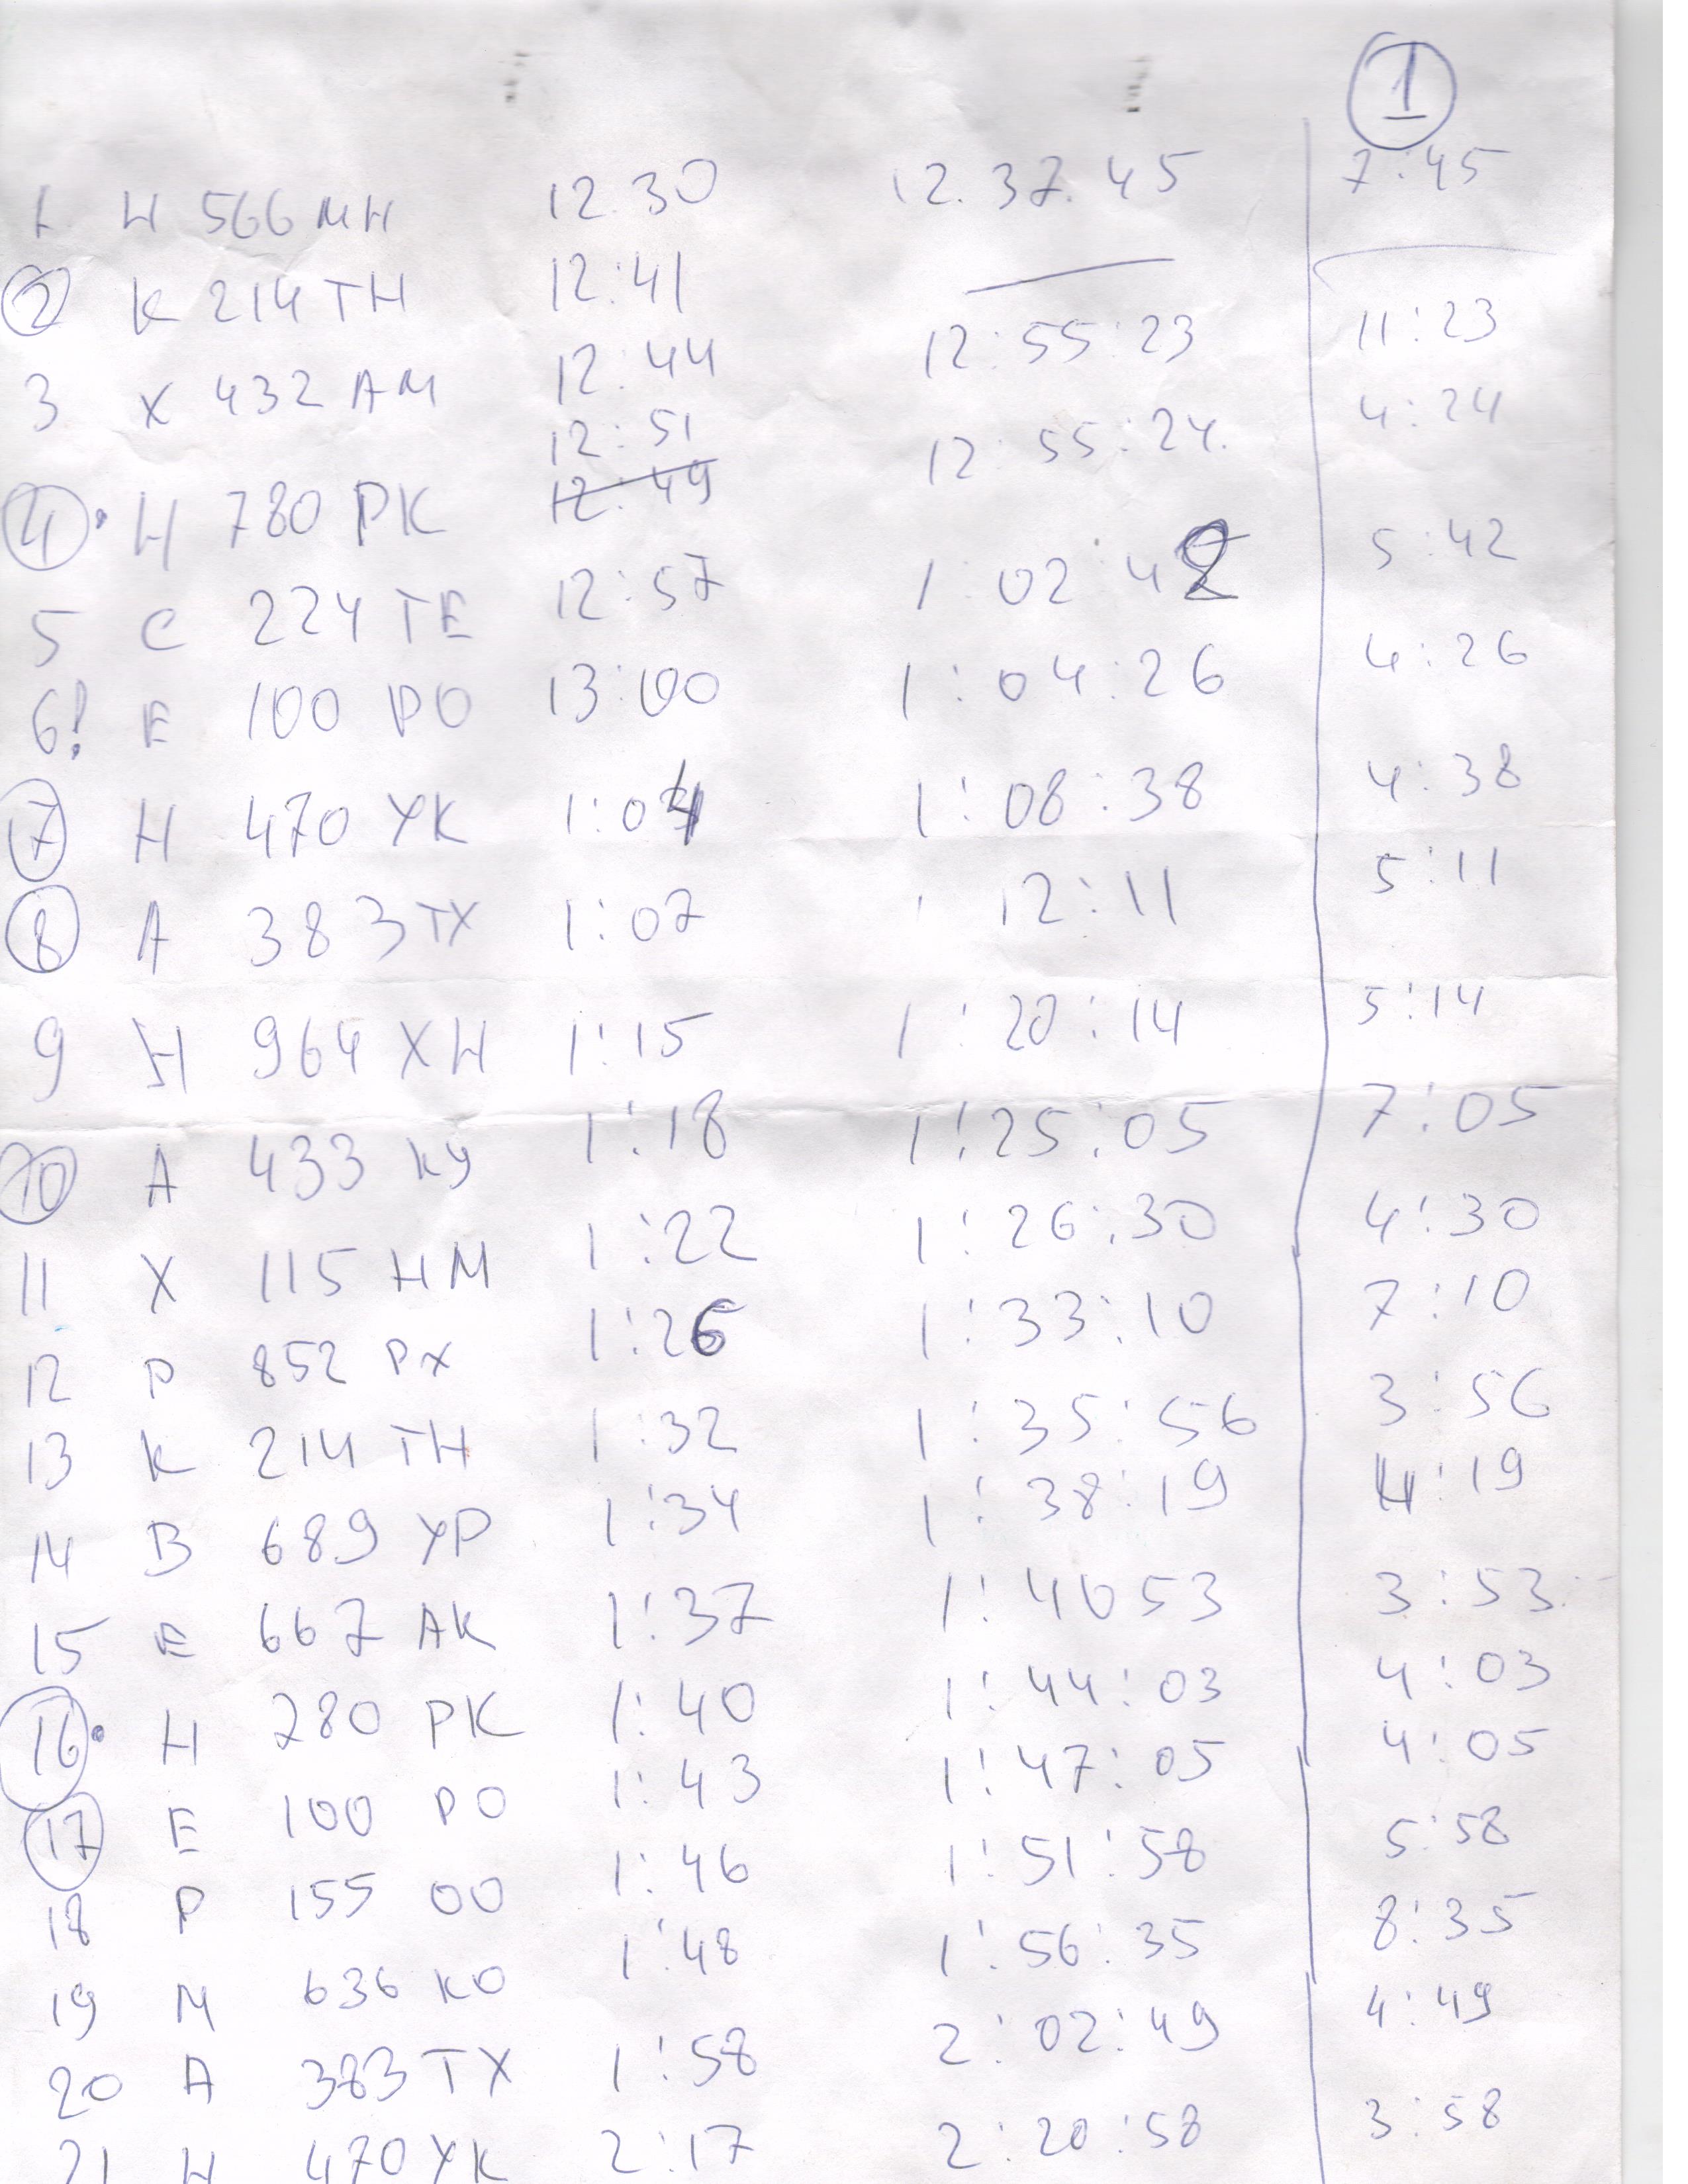 1
1. Н 566 МН 12.30 12.37.45 7:45
2 К 214 ТН 12:41
3 Х 432 АМ 12:44 12:55:23 11:23
12:51 12:55:24. 4:24
4 Н 780 РК 12:49
5 С 224 ТЕ 12:57 1:02:42 5:42
6! Е 100 РО 13:00 1:04:26 4:26
7 Н 470 УК 1:04 1:08:38 4:38
8 А 383 ТХ 1:07 12:11 5:11
9 Н 964 ХН 1:15 1:20:14 5:14
10 А 433 КУ 1:18 1:25:05 7:05
11 Х 115 НМ 1:22 1:26:30 4:30
12 Р 852 РХ 1:26 1:33:10 7:10
13 К 214 ТН 1:32 1:35:56 3:56
14 В 689 УР 1:34 1:38:19 4:19
15 Е 667 АК 1:37 1:40 53 3:53
16 Н 780 РК 1:40 1:44:03 4:03
17 Е 100 РО 1:43 1:47:05 4:05
18 Р 155 ОО 1:46 1:51:58 5:58
19 М 636 КО 1:48 1:56:35 8:35
20 А 383 ТХ 1:58 2:02:49 4:49
21 Н 470 УК 2:17 2:20:58 3:58